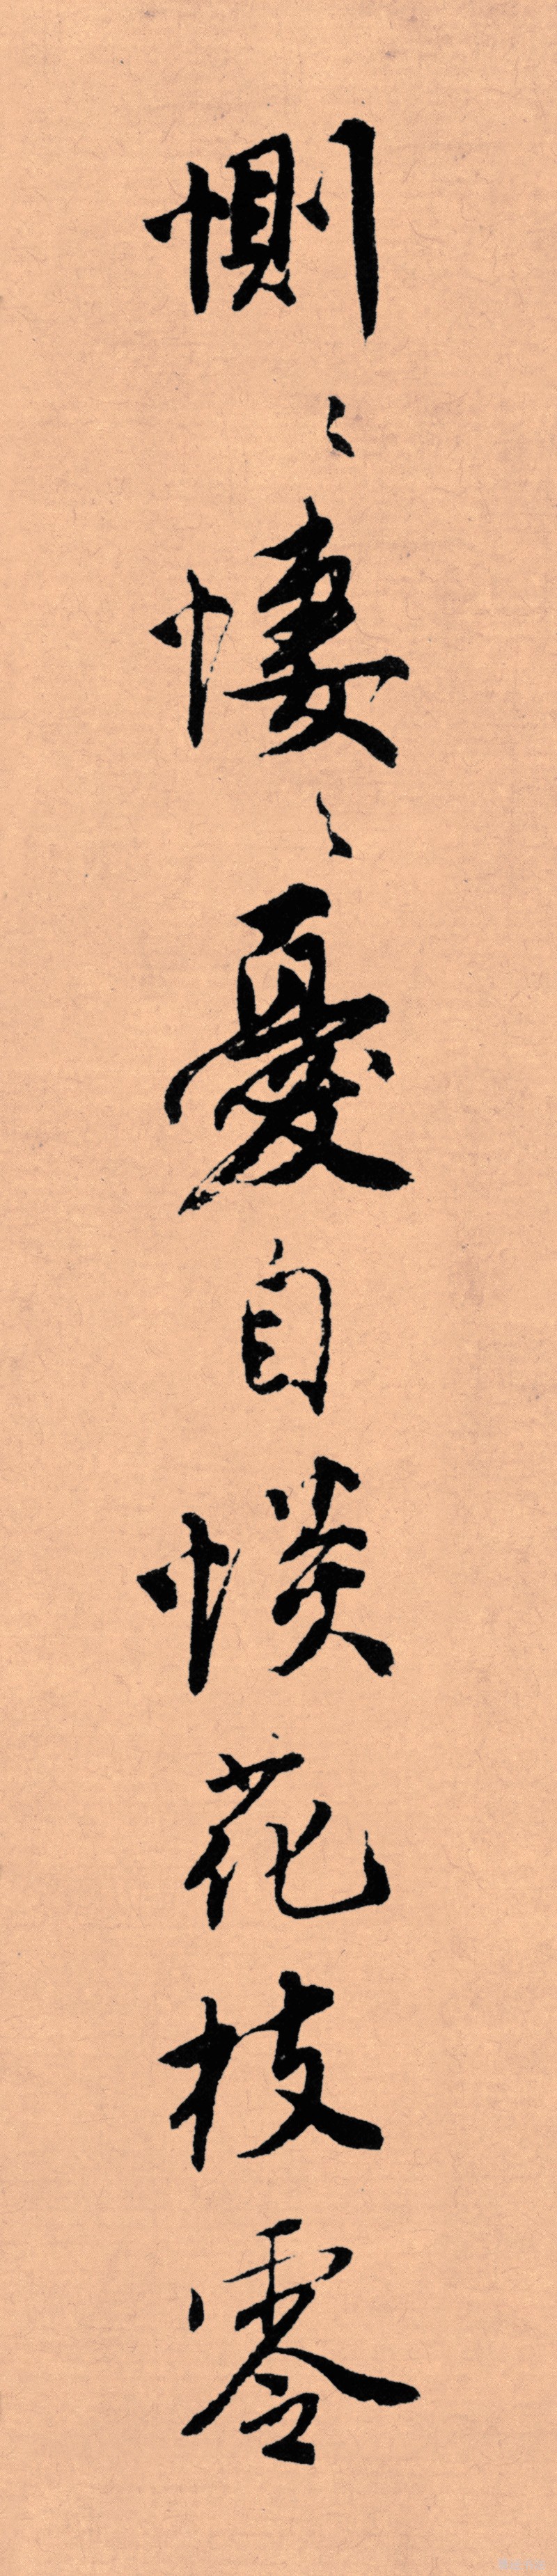 惻〻悽〻憂自惔花枝零